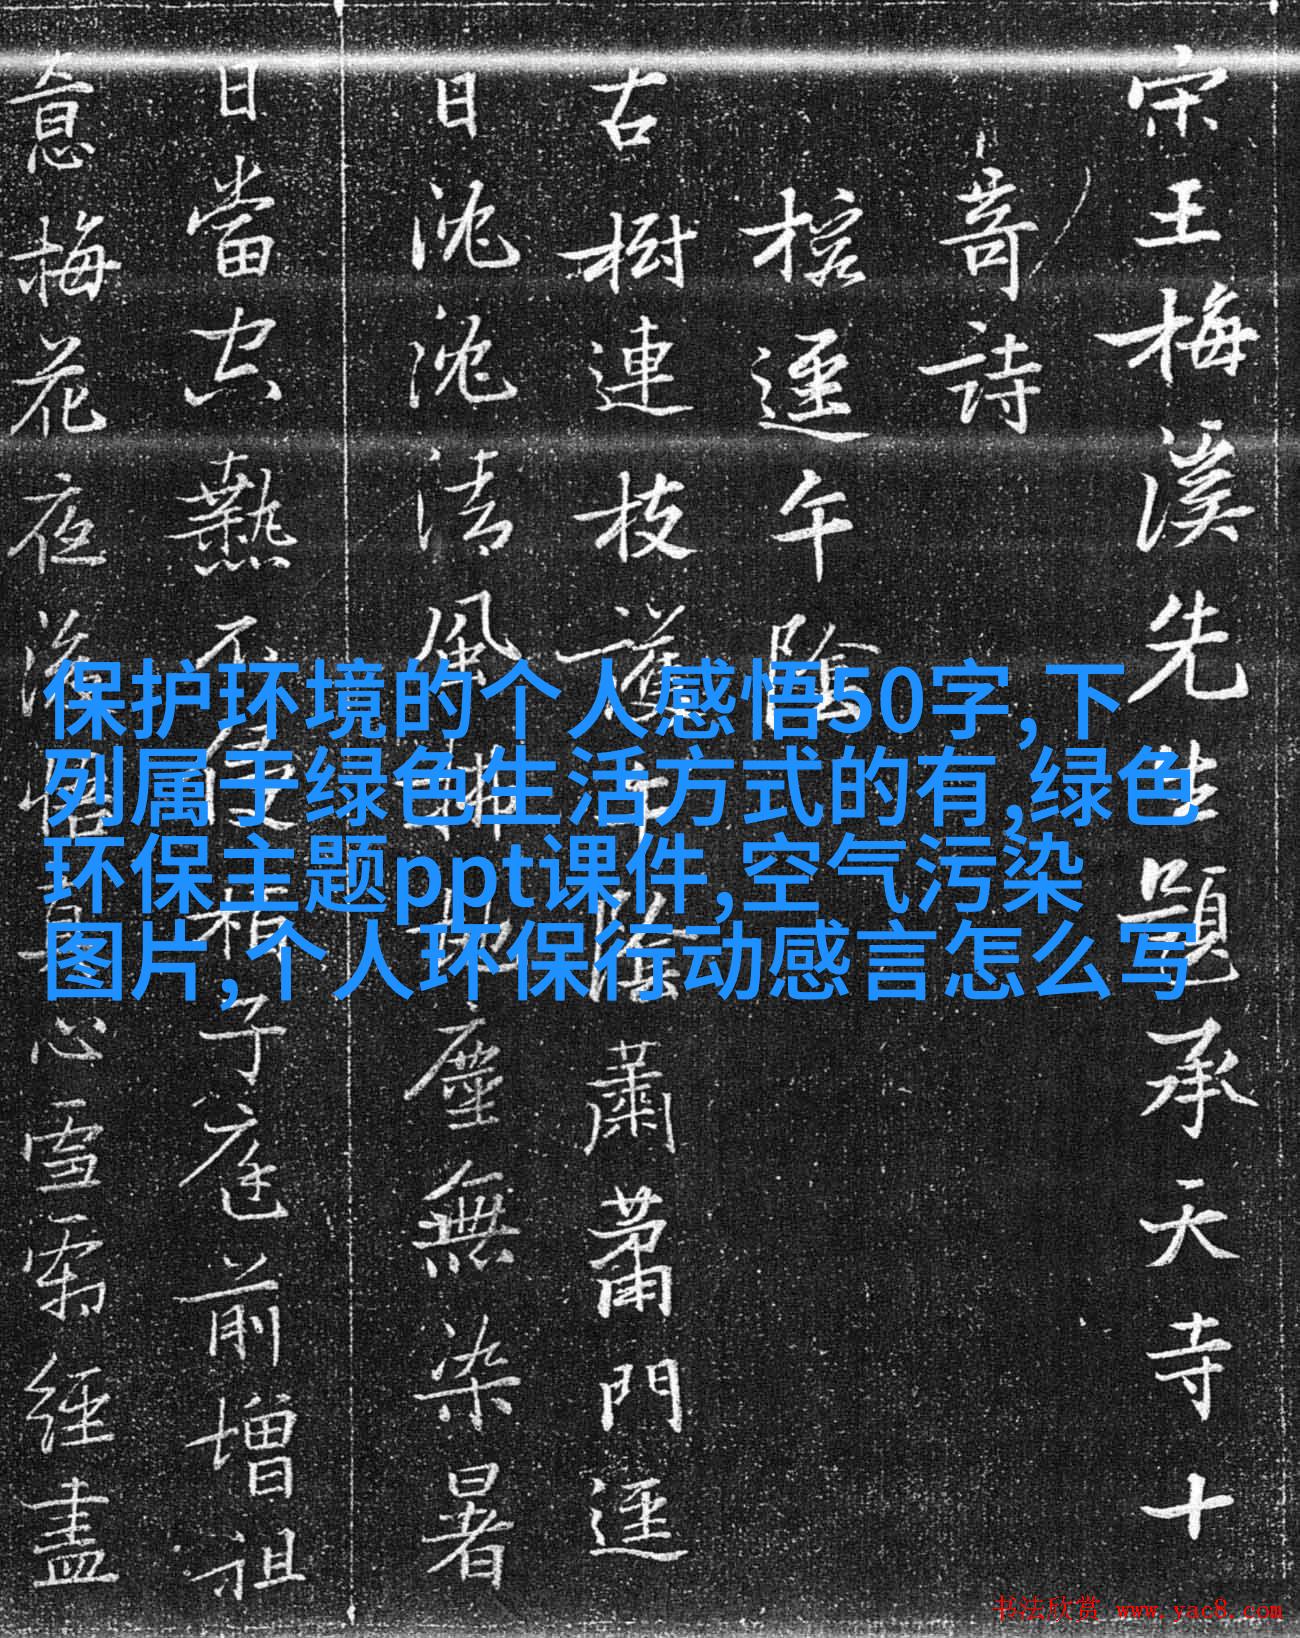 宋王梅溪先生題承天寺十
奇詩
榕逕午陰
古樹連枝護午陰蕭蕭門逕
日沈沈清風拂地塵無染暑
日當空熱不侵稍子庭前增祖
意梅花夜落悟真心雪霜經盡
保护环境的个人感悟50字,下
列属于绿色生活方式的有,绿色
环保主题ppt课件,空气污染
图片,个人环保行动感言怎么写
书法欣赏 www.yac8.com